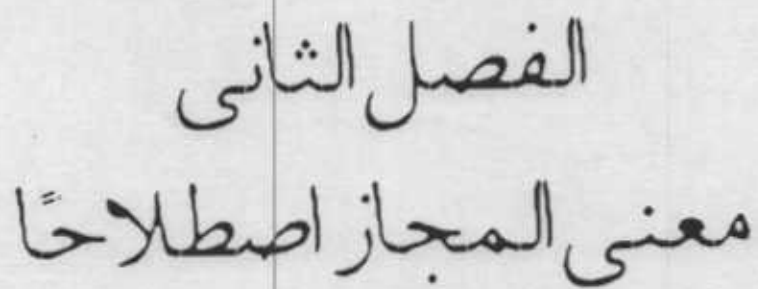 الفصل الثانى
معنى المجاز اصطلاحًا